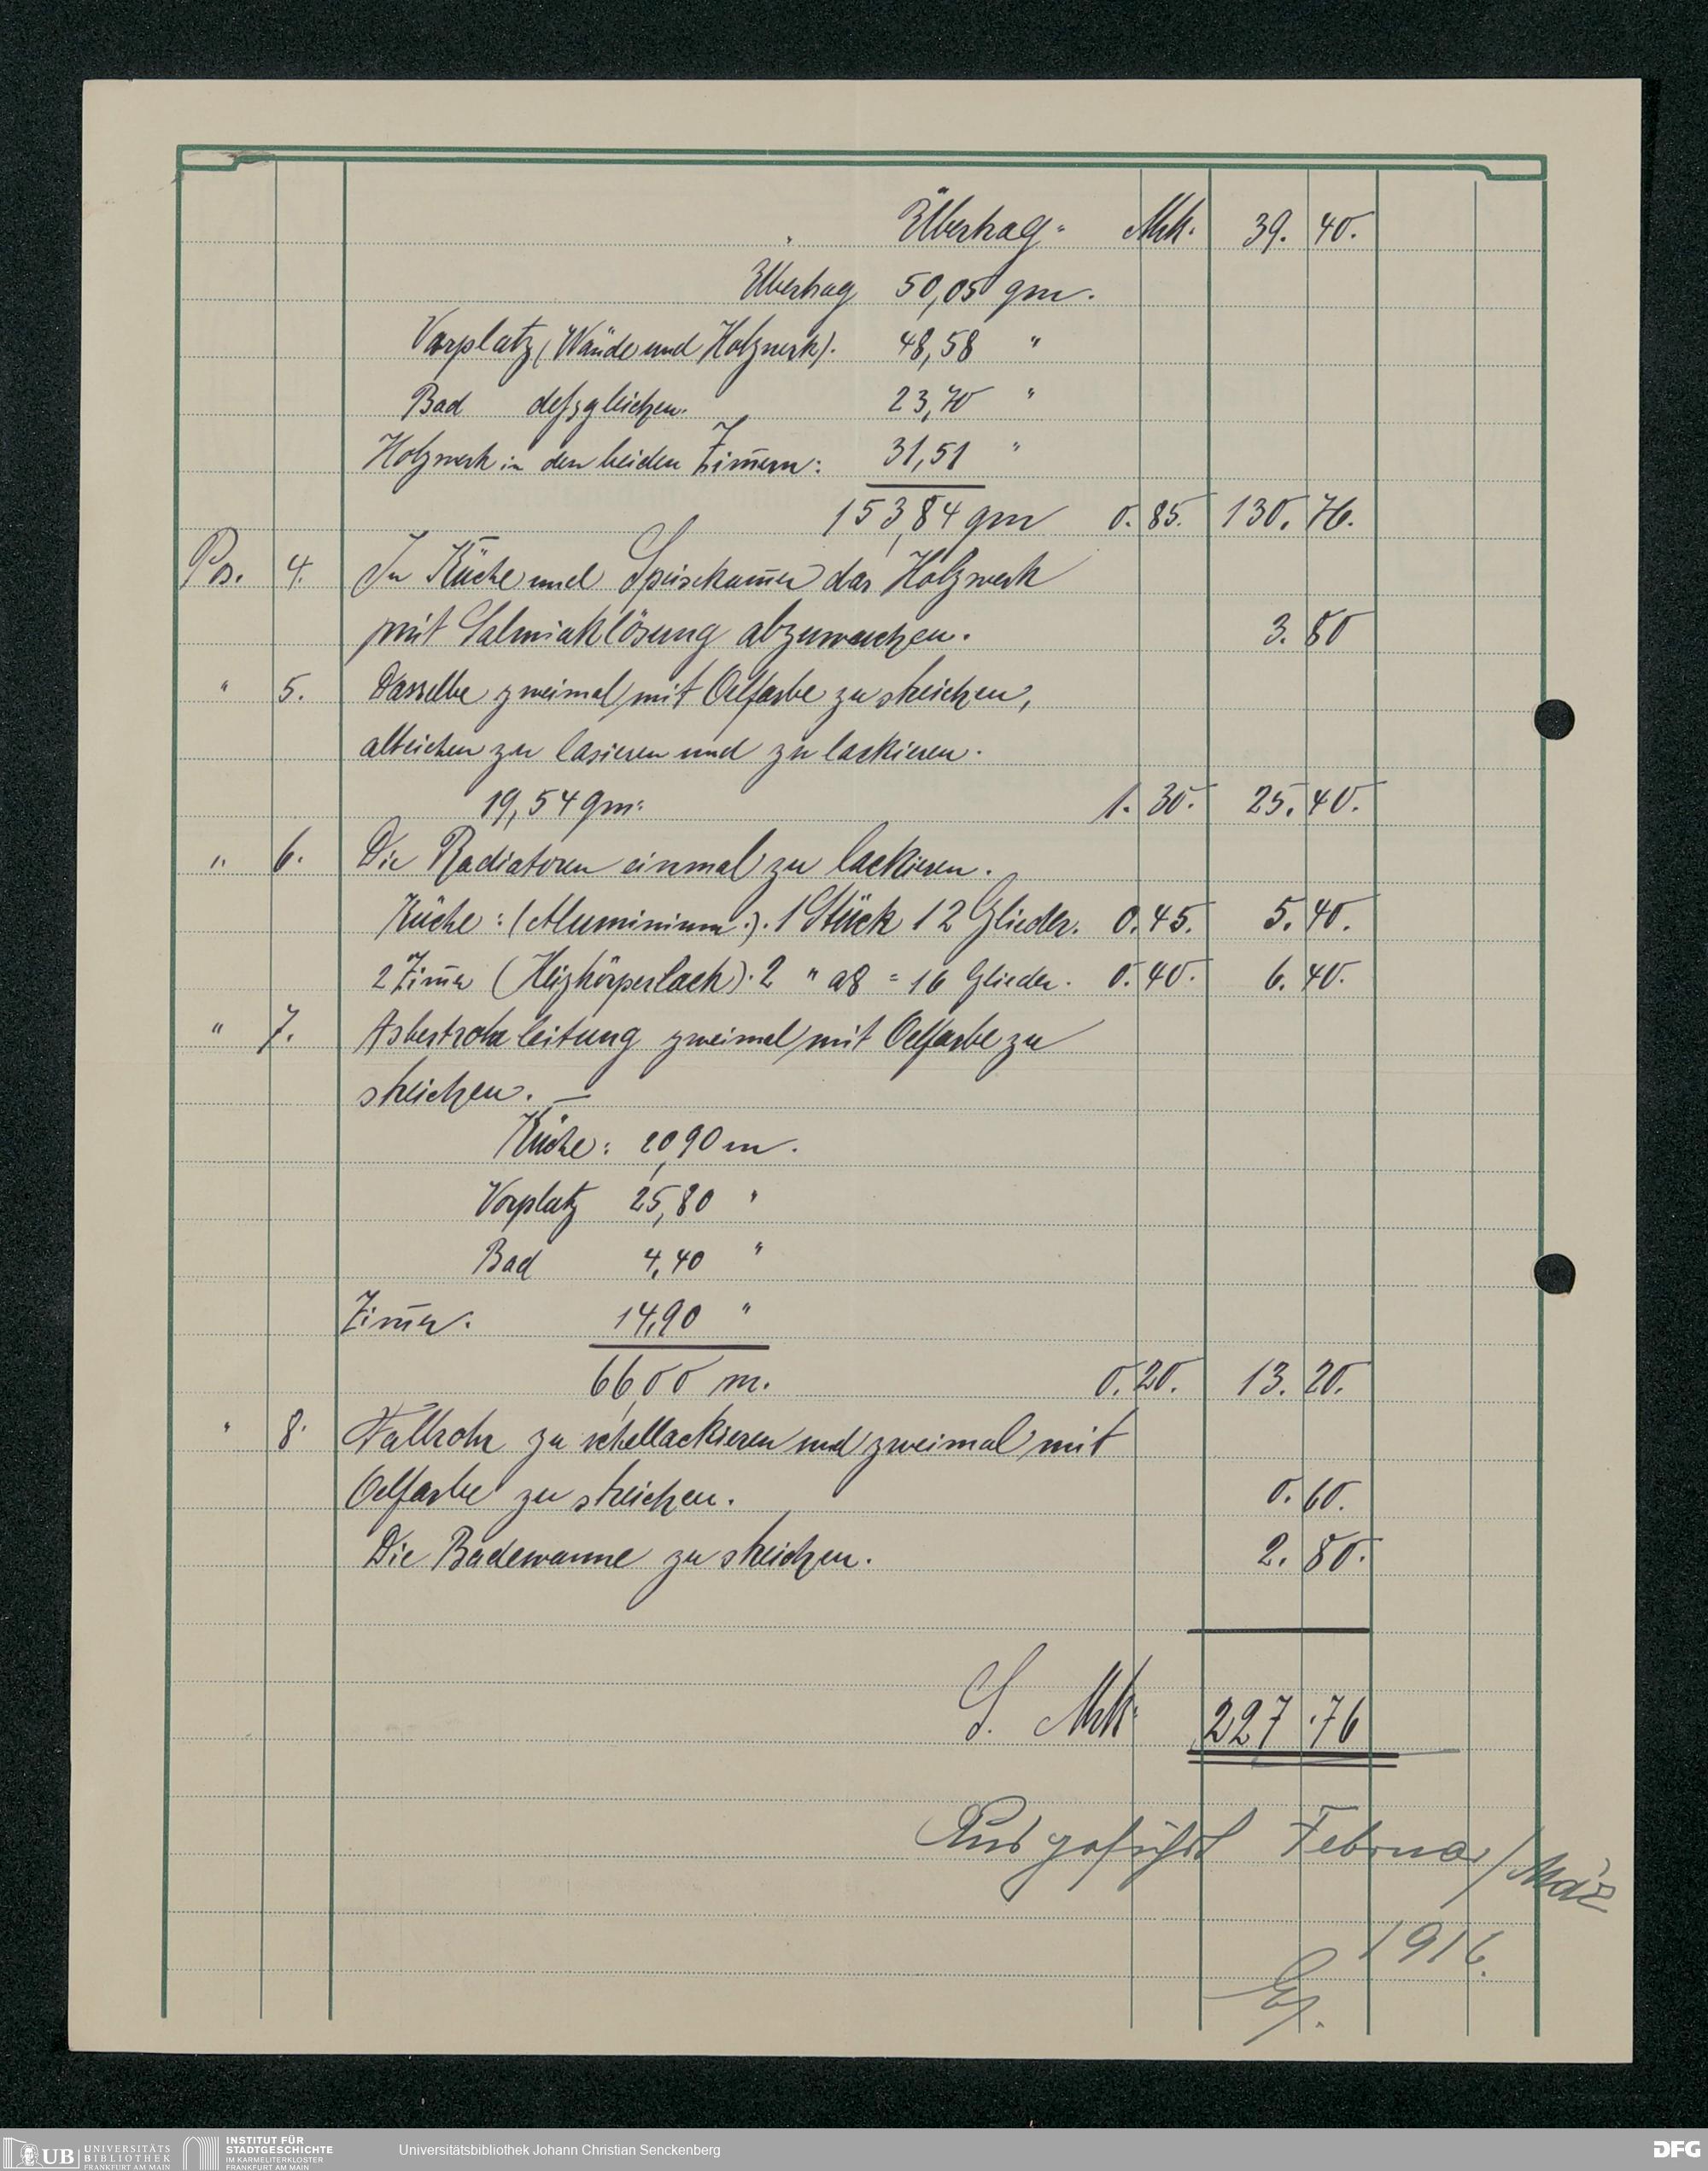 Übertrag Mk. 39. 40.
Übertrag 50,05 qm.
Vorplatz (Wände und Holzwerk). 48,58 "
Bad deßgleichen. 23,70 "
Holzwerk in den beiden Zim̅ern: 31,51 "
153,84 qm 0. 85. 130. 76.
Pos. 4. In Küche und Speisekam̅er das Holzwerk
mit Salmiaklösung abzuwaschen. 3. 80
" 5. Dasselbe zweimal mit Oelfarbe zu streichen,
alteichen zu lasieren und zu lackieren.
19,54 qm: 1. 30. 25. 40.
" 6. Die Radiatoren einmal zu lackieren.
Küche: (Aluminium). 1 Stück 12 Glieder. 0. 45. 5. 40.
2 Zim̅er (Heizkörperlack). 2 " a 8 = 16 Glieder. 0. 40. 6. 40.
" 7. Asbestrohrleitung zweimal mit Oelfarbe zu
streichen.
Küche: 20,90 m.
Vorplatz 25,80 "
Bad 4,40 "
Zim̅er. 14,90 "
66,00 m. 0. 20. 13. 20.
" 8. Fallrohr zu schellackieren und zweimal mit
Oelfarbe zu streichen. 0. 60.
Die Badewanne zu streichen. 2. 80.
S. Mk. 227.76
Ausgeführt Februar/März
1916.
UB UNIVERSITÄTS
BIBLIOTHEK
FRANKFURT AM MAIN
INSTITUT FÜR
STADTGESCHICHTE
IM KARMELITERKLOSTER
FRANKFURT AM MAIN
Universitätsbibliothek Johann Christian Senckenberg
DFG